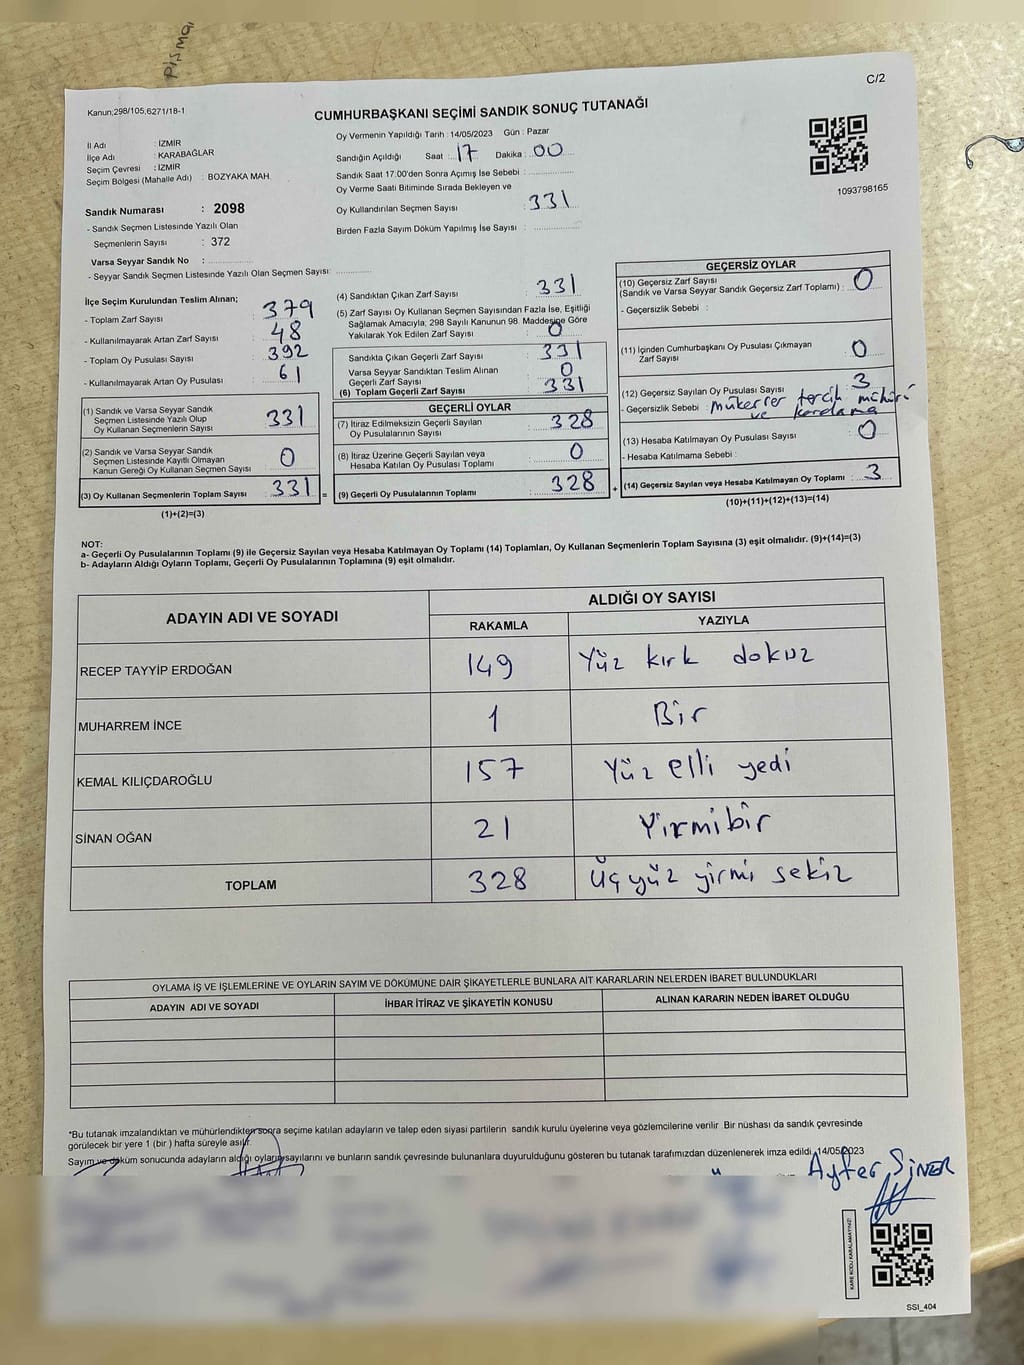 Pişma
C/2
Kanun;298/105,6271/18-1
CUMHURBAŞKANI SEÇİMİ SANDIK SONUÇ TUTANAĞI
İl Adı : İZMİR
İlçe Adı : KARABAĞLAR
Seçim Çevresi : İZMİR
Seçim Bölgesi (Mahalle Adı) : BOZYAKA MAH.
Oy Vermenin Yapıldığı Tarih : 14/05/2023 Gün : Pazar
Sandığın Açıldığı Saat : 17 Dakika : 00
Sandık Saat 17.00'den Sonra Açımış İse Sebebi :
Oy Verme Saati Bitiminde Sırada Bekleyen ve
Oy Kullandırılan Seçmen Sayısı : 331
Birden Fazla Sayım Döküm Yapılmış İse Sayısı :
1093798165
Sandık Numarası : 2098
- Sandık Seçmen Listesinde Yazılı Olan
Seçmenlerin Sayısı : 372
Varsa Seyyar Sandık No :
- Seyyar Sandık Seçmen Listesinde Yazılı Olan Seçmen Sayısı:
İlçe Seçim Kurulundan Teslim Alınan;
- Toplam Zarf Sayısı : 379
- Kullanılmayarak Artan Zarf Sayısı : 48
- Toplam Oy Pusulası Sayısı : 392
- Kullanılmayarak Artan Oy Pusulası : 61
(1) Sandık ve Varsa Seyyar Sandık
Seçmen Listesinde Yazılı Olup
Oy Kullanan Seçmenlerin Sayısı : 331
(2) Sandık ve Varsa Seyyar Sandık
Seçmen Listesinde Kayıtlı Olmayan
Kanun Gereği Oy Kullanan Seçmen Sayısı : 0
(3) Oy Kullanan Seçmenlerin Toplam Sayısı : 331 =
(1)+(2)=(3)
(4) Sandıktan Çıkan Zarf Sayısı : 331
(5) Zarf Sayısı Oy Kullanan Seçmen Sayısından Fazla İse, Eşitliği
Sağlamak Amacıyla, 298 Sayılı Kanunun 98. Maddesine Göre
Yakılarak Yok Edilen Zarf Sayısı : 0
Sandıkta Çıkan Geçerli Zarf Sayısı : 331
Varsa Seyyar Sandıktan Teslim Alınan
Geçerli Zarf Sayısı : 0
(6) Toplam Geçerli Zarf Sayısı : 331
GEÇERLİ OYLAR
(7) İtiraz Edilmeksizin Geçerli Sayılan
Oy Pusulalarının Sayısı : 328
(8) İtiraz Üzerine Geçerli Sayılan veya
Hesaba Katılan Oy Pusulası Toplamı : 0
(9) Geçerli Oy Pusulalarının Toplamı : 328 +
GEÇERSİZ OYLAR
(10) Geçersiz Zarf Sayısı
(Sandık ve Varsa Seyyar Sandık Geçersiz Zarf Toplamı) : 0
- Geçersizlik Sebebi :
(11) İçinden Cumhurbaşkanı Oy Pusulası Çıkmayan
Zarf Sayısı : 0
(12) Geçersiz Sayılan Oy Pusulası Sayısı : 3
- Geçersizlik Sebebi : mükerrer tercih mührü
ve karalama
(13) Hesaba Katılmayan Oy Pusulası Sayısı : 0
- Hesaba Katılmama Sebebi :
(14) Geçersiz Sayılan veya Hesaba Katılmayan Oy Toplamı : 3
(10)+(11)+(12)+(13)=(14)
NOT:
a- Geçerli Oy Pusulalarının Toplamı (9) ile Geçersiz Sayılan veya Hesaba Katılmayan Oy Toplamı (14) Toplamları, Oy Kullanan Seçmenlerin Toplam Sayısına (3) eşit olmalıdır. (9)+(14)=(3)
b- Adayların Aldığı Oyların Toplamı, Geçerli Oy Pusulalarının Toplamına (9) eşit olmalıdır.
ADAYIN ADI VE SOYADI
ALDIĞI OY SAYISI
RAKAMLA YAZIYLA
RECEP TAYYİP ERDOĞAN 149 Yüz kırk dokuz
MUHARREM İNCE 1 Bir
KEMAL KILIÇDAROĞLU 157 Yüz elli yedi
SİNAN OĞAN 21 Yirmibir
TOPLAM 328 Üçyüz yirmi sekiz
OYLAMA İŞ VE İŞLEMLERİNE VE OYLARIN SAYIM VE DÖKÜMÜNE DAİR ŞİKAYETLERLE BUNLARA AİT KARARLARIN NELERDEN İBARET BULUNDUKLARI
ADAYIN ADI VE SOYADI İHBAR İTİRAZ VE ŞİKAYETİN KONUSU ALINAN KARARIN NEDEN İBARET OLDUĞU
*Bu tutanak imzalandıktan ve mühürlendikten sonra seçime katılan adayların ve talep eden siyasi partilerin sandık kurulu üyelerine veya gözlemcilerine verilir. Bir nüshası da sandık çevresinde
görülecek bir yere 1 (bir ) hafta süreyle asılır.
Sayım ve döküm sonucunda adayların aldığı oyların sayılarını ve bunların sandık çevresinde bulunanlara duyurulduğunu gösteren bu tutanak tarafımızdan düzenlenerek imza edildi. 14/05/2023
Ayfer SİNER
KARE KODU KARALAMAYINIZ!
SSI_404